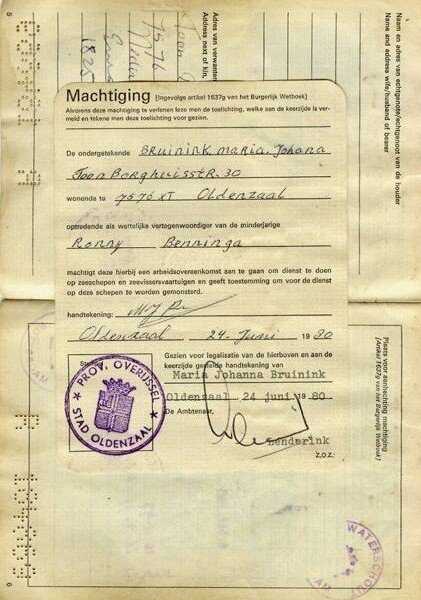 Machtiging [Ingevolge artikel 1637g van het Burgerlijk Wetboek]
Alvorens deze machtiging te verlenen leze men de toelichting, welke aan de keerzijde is ver-
meld en tekene men deze toelichting voor gezien.
De ondergetekende BRUININK MARIA. Johana
Toon Borghuisstr. 30
wonende te 7576 XT Oldenzaal
optredende als wettelijke vertegenwoordiger van de minderjarige
Ronny Benninga
machtigt deze hierbij een arbeidsovereenkomst aan te gaan om dienst te doen
op zeeschepen en zeevissersvaartuigen en geeft toestemming om voor de dienst
op deze schepen te worden gemonsterd.
handtekening:
Oldenzaal 24 Juni 1980
Gezien voor legalisatie van de hierboven en aan de
keerzijde gestelde handtekening van
Maria Johanna Bruinink
Oldenzaal 24 juni 1980
De Ambtenaar,
Lenderink
z.o.z.
PROV. OVERIJSSEL
STAD OLDENZAAL
Naam en adres van echtgenote/echtgenoot van de houder
Name and address wife/husband of bearer
Adres van verwanten
Address next of kin.
7576
1825
Plaats voor aanhechting machtiging
[Artikel 1637g van het Burgerlijk Wetboek]
WATERSCHOUT
5
6